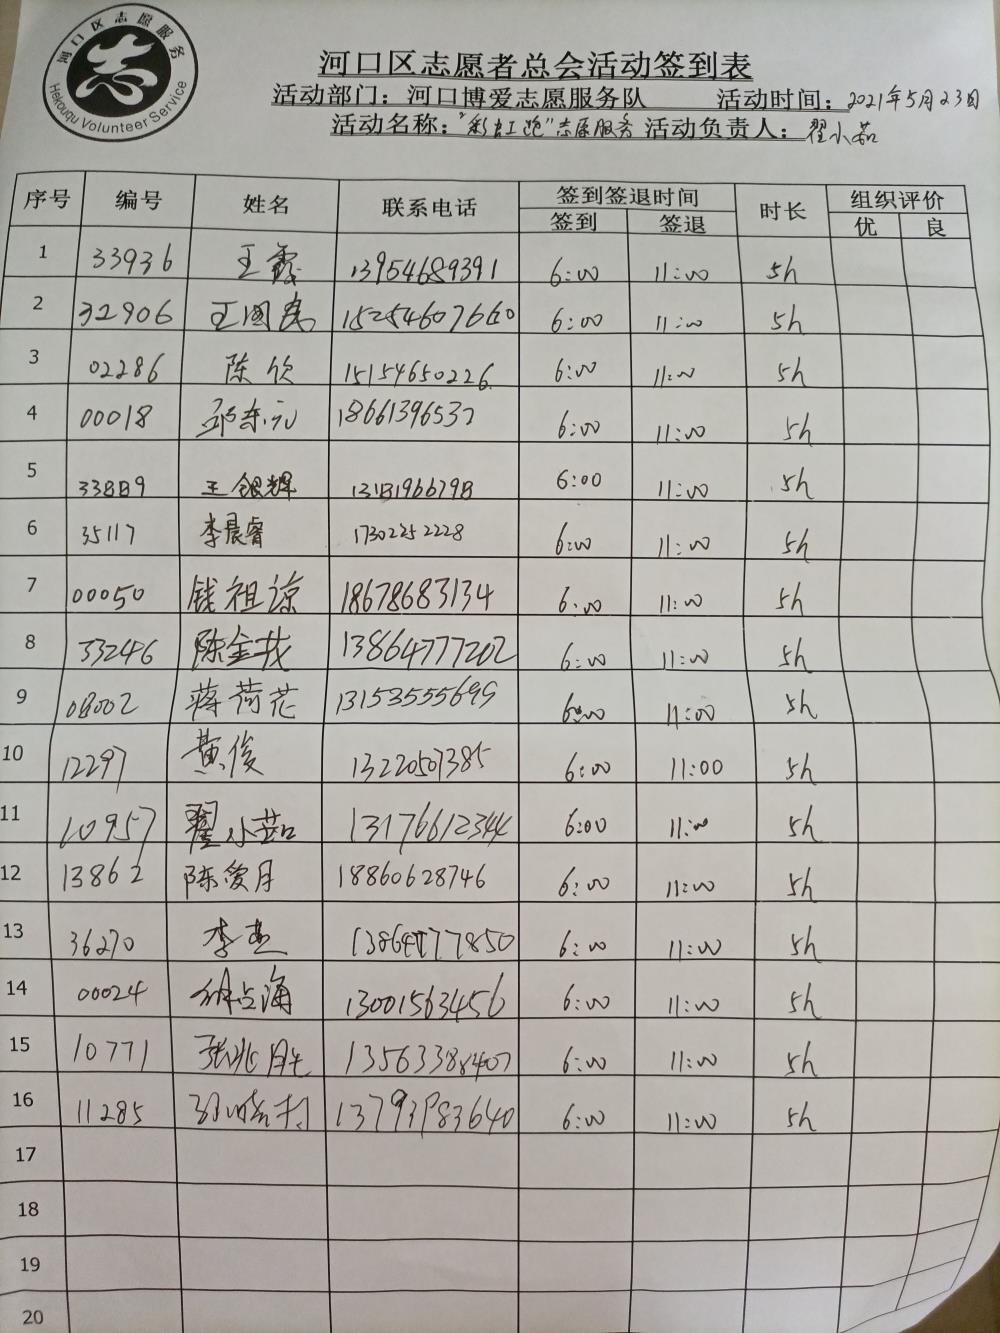 河口区志愿服务
Hekouqu Volunteer Service
河口区志愿者总会活动签到表
活动部门：河口博爱志愿服务队 活动时间：2021年5月23日
活动名称："彩虹跑"志愿服务 活动负责人：翟小茹
序号 编号 姓名 联系电话 签到签退时间 时长 组织评价
签到 签退 优 良
1 33936 王霞 13954689391 6:00 11:00 5h
2 32906 王国 15254607660 6:00 11:00 5h
3 02286 陈欣 15154650226 6:00 11:00 5h
4 00018 邱东元 18661396532 6:00 11:00 5h
5 33889 王银辉 6:00 11:00 5h
6 35117 李晨睿 17302252228 6:00 11:00 5h
7 00050 钱祖谅 18678683134 6:00 11:00 5h
8 33246 陈金 13864777202 6:00 11:00 5h
9 08002 蒋荷花 13153555699 6:00 11:00 5h
10 12297 黄俊 13220507385 6:00 11:00 5h
11 10957 翟小茹 13176612344 6:00 11:00 5h
12 13862 陈爱月 18860628746 6:00 11:00 5h
13 36270 李 13864777850 6:00 11:00 5h
14 00024 海 13001563456 6:00 11:00 5h
15 10771 张兆胜 13563388407 6:00 11:00 5h
16 11285 13793983640 6:00 11:00 5h
17
18
19
20